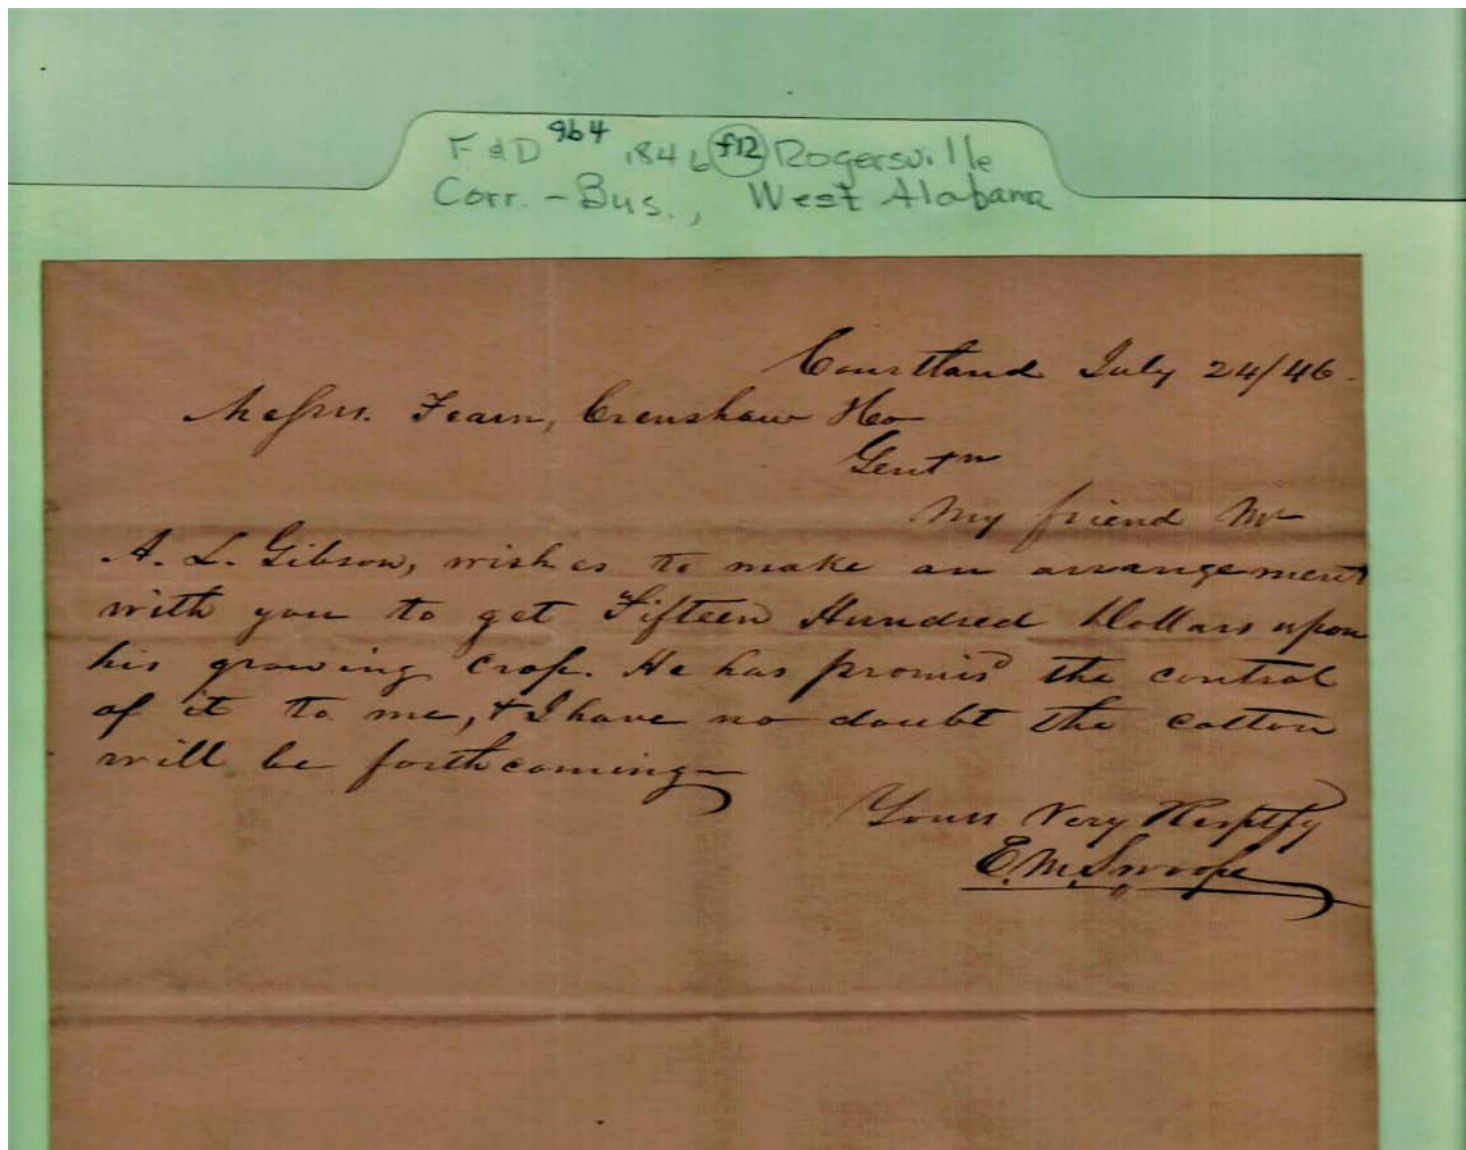 F & D 964 1846 f12 Rogersville
Corr. - Bus., West Alabama
Courtland July 24/46.
Messrs. Fearn, Crenshaw & Co
Gentn
My friend Mr
A. L. Gibson, wishes to make an arrangement
with you to get Fifteen Hundred Dollars upon
his growing crop. He has promisd the control
of it to me, & I have no doubt the cotton
will be forthcoming
Yours Very Resptfy
E. M. Swoope